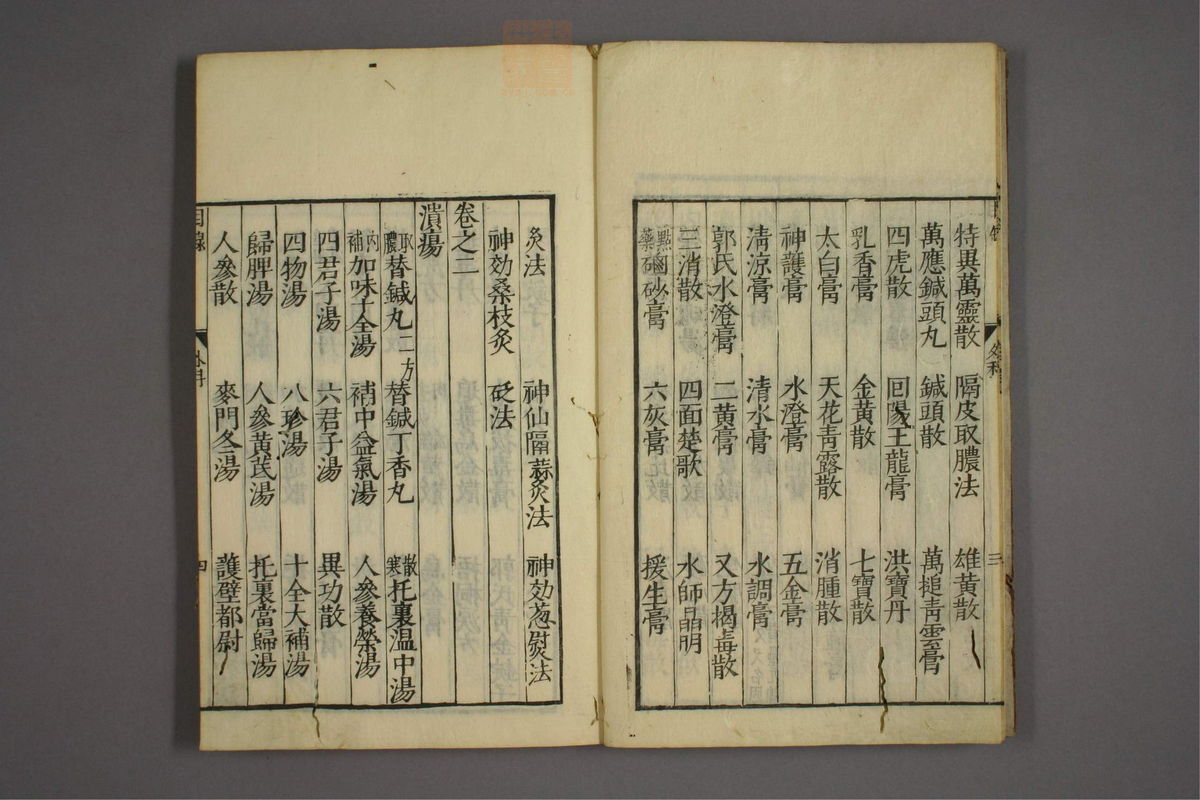 特異萬靈散　隔皮取膿法　雄黃散
萬應鍼頭丸　鍼頭散　萬搥靑雲膏
四虎散　囘陽王龍膏　洪寶丹
乳香膏　金黃散　七寶散
太白膏　天花靑露散　消腫散
神護膏　水澄膏　五金膏
淸涼膏　淸水膏　水調膏
郭氏水澄膏　二黃膏　又方揭毒散
三消散　四面楚歌　水師晶明
點藥硇砂膏　六灰膏　援生膏
三
外科
灸法　神仙隔蒜灸法　神効葱熨法
神効桑枝灸　砭法
卷之二
潰瘍
取膿替鍼丸二方　替鍼丁香丸　散寒托裏溫中湯
內補加味十全湯　補中益氣湯　人參養榮湯
四君子湯　六君子湯　異功散
四物湯　八珍湯　十全大補湯
歸脾湯　人參黃茋湯　托裏當歸湯
人參散　麥門冬湯　護壁都尉
目錄　外科　四